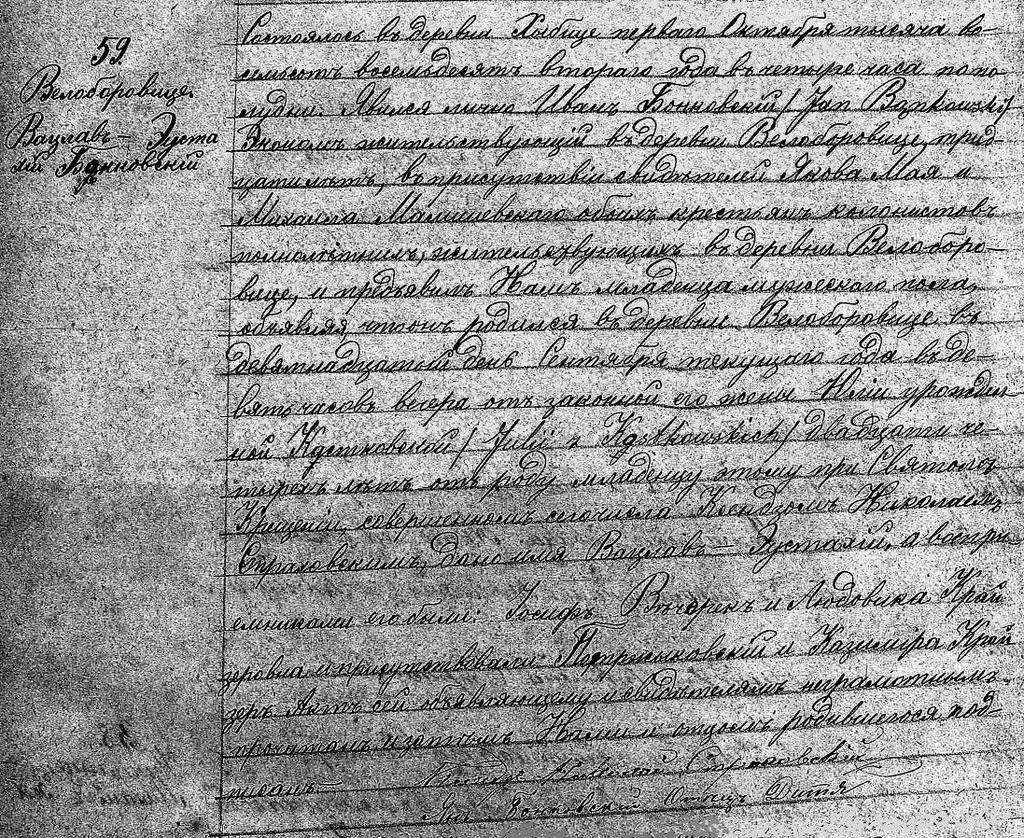 59.
Велоборовице.
Вацлавъ – Эуста
хій Бонковскій
Состоялось въ деревни Хыбице перваго Октября тысяча во-
семьсотъ восемьдесятъ втораго года въ четыре часа по по
лудни. Явился лично Иванъ Бонковскій / Jan Bąnkowski /
Экономъ жительствующій въ деревни Велоборовице, трид-
цати лѣтъ, въ присутствіи свидѣтелей Якова Мая и
Михаила Малишевскаго обоихъ крестьянъ колонистовъ
полнолѣтнихъ, жительствующихъ въ деревни Велоборо-
вице, и предъявилъ Намъ младенца мужескаго пола,
объявляя, что онъ родился въ деревни Велоборовице въ
девятнадцатый день Сентября текущаго года въ де-
вять часовъ вечера отъ законной его жены Юліи урожден
ной Кѫстковской / Julii z Kąstkowskich / двадцати че-
тырехъ лѣтъ отъ роду младенцу этому при Святомъ
Крещеніи, совершенномъ сего числа Ксендзомъ Николаемъ
Страховскимъ, дано имя Вацлавъ – Эустахій, а воспрі
емниками его были: Іосифъ Вѣчорекъ и Людовика Край
церовна и присутствовали и Казиміра Край
церъ. Актъ сей объявляющему и свидѣтелямъ неграмотнымъ
прочитанъ, и затѣмъ Нами и отцомъ родившегося под-
писанъ.
Ксендзъ Николай Страховскій
Янъ Бонковскій Отецъ Дитя